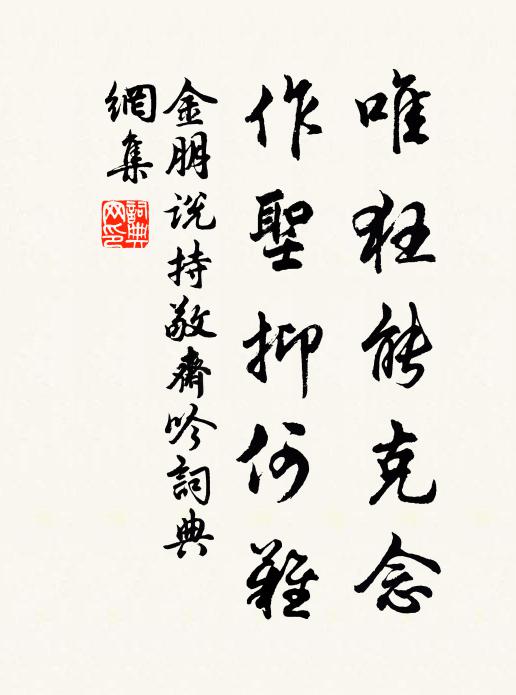 唯狂能克念
作聖抑何難
金朋説持敬齋吟詞典
網集
詞典
网印